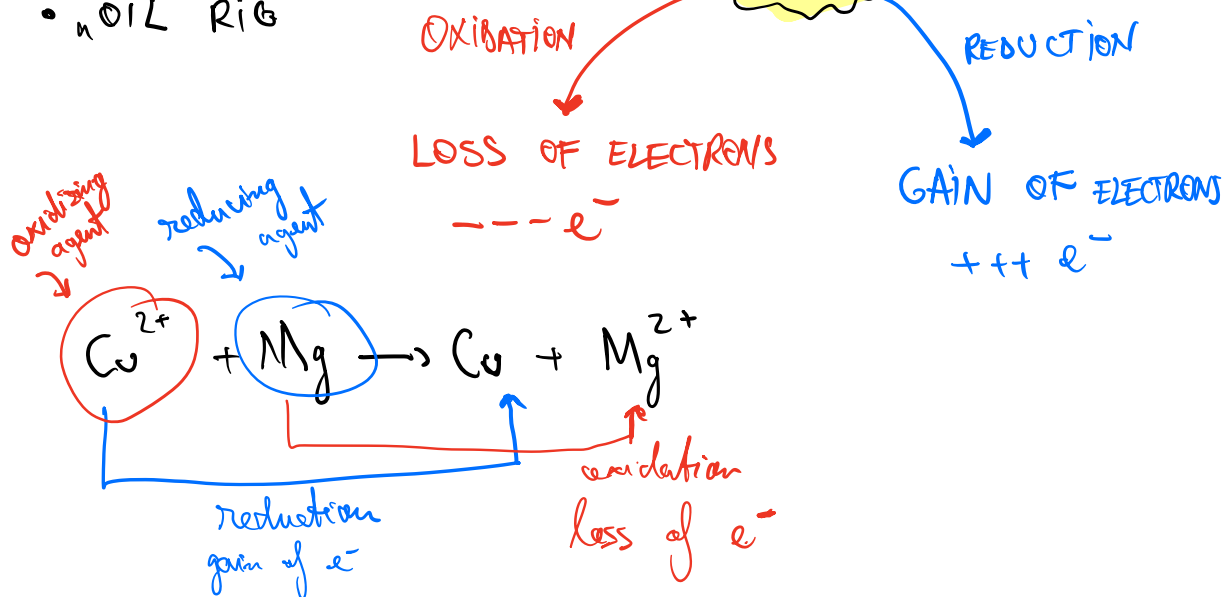 • "OIL RIG
OXIDATION
REDUCTION
LOSS OF ELECTRONS
GAIN OF ELECTRONS
--- e⁻
+++ e⁻
oxidising
agent
reducing
agent
Cu²⁺ + Mg → Cu + Mg²⁺
oxidation
loss of e⁻
reduction
gain of e⁻